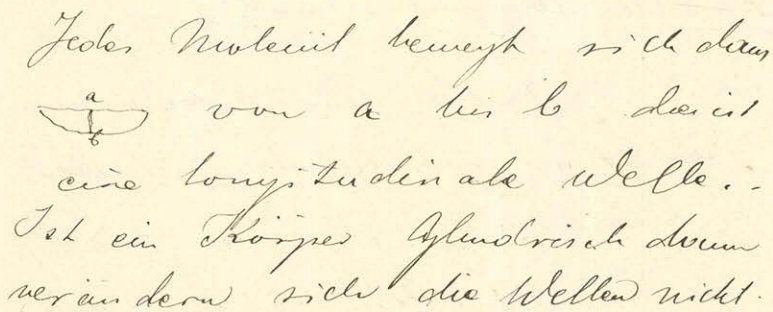 Jedes Molekül bewegt sich dann
a b von a bis b da ist
eine longitudinale Welle.
Ist ein Körper Cylindrisch dann
verändern sich die Wellen nicht.